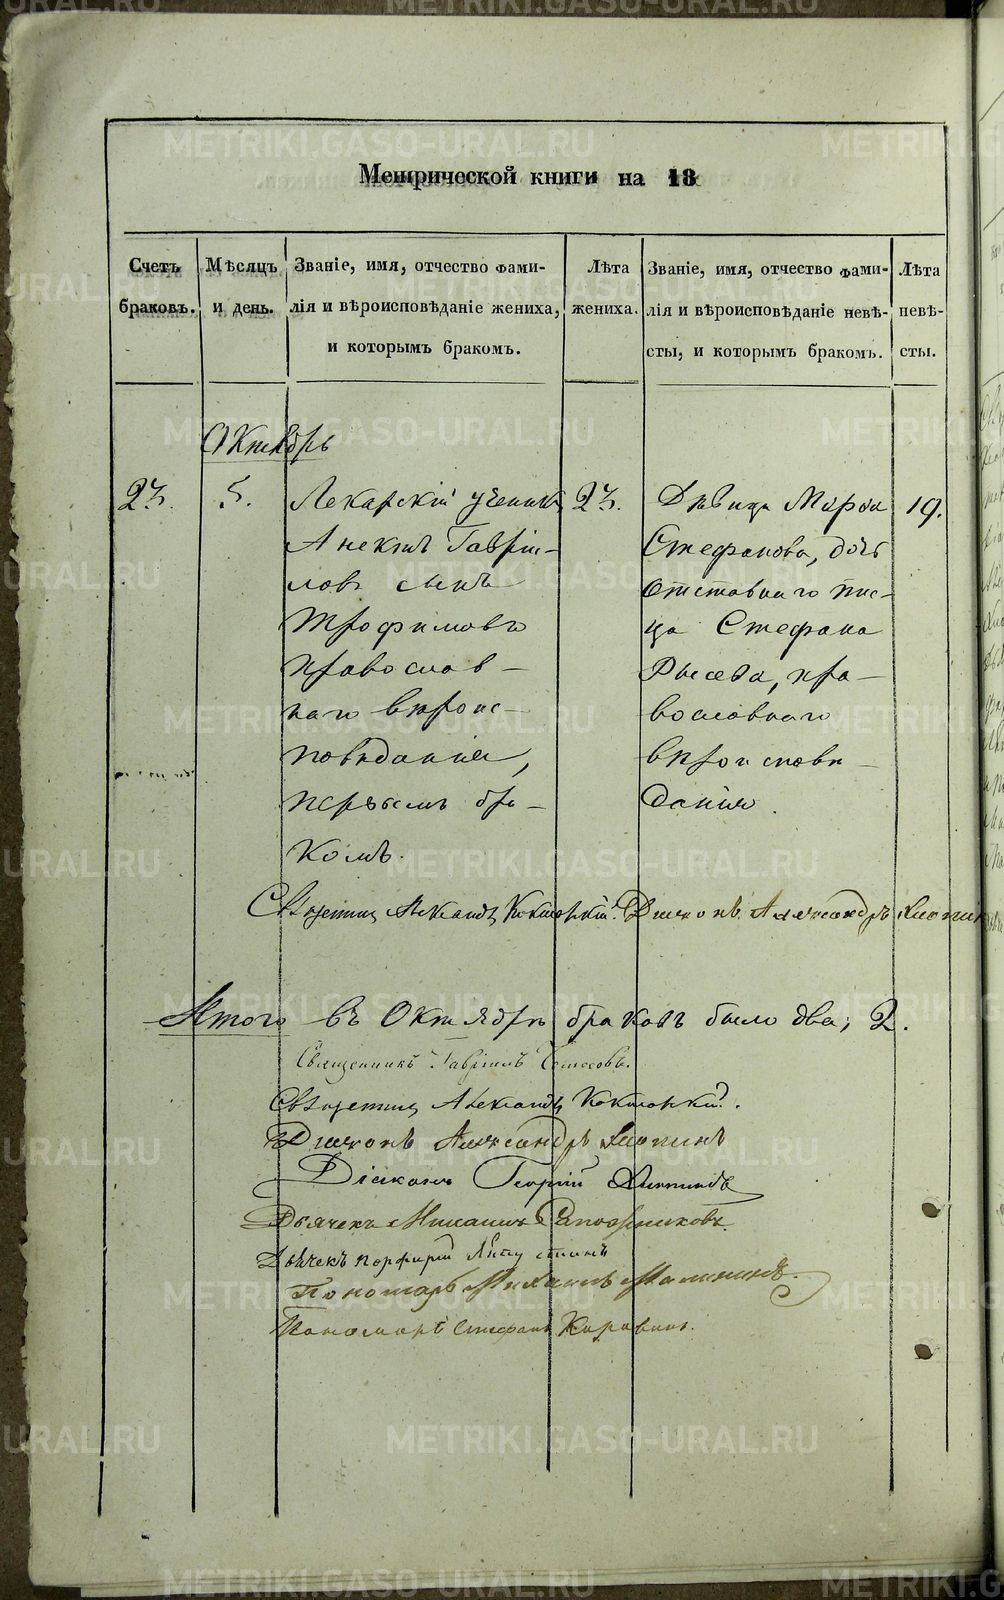 Метрической книги на 18
Счетъ браковъ.
Мѣсяцъ и день.
Званіе, имя, отчество фами-
лія и вѣроисповѣданіе жениха,
и которымъ бракомъ.
Лѣта жениха.
Званіе, имя, отчество фами-
лія и вѣроисповѣданіе невѣ-
сты, и которымъ бракомъ.
Лѣта невѣ-
сты.
Октябрь
23.
5.
Лекарскій ученикъ
Анектъ Гавріи-
ловъ сынъ
Трофимовъ
православ-
наго вѣроис-
повѣданія,
первымъ бра-
комъ.
23.
Дѣвица Марѳа
Стефанова, дочь
отставнаго пис-
ца Стефана
Рысева, пра-
вославнаго
вѣроисповѣ-
данія.
19.
Священникъ Александръ Кокшарскій. Діаконъ Александръ
Итого въ Октябрѣ браковъ было два, 2.
Священникъ Гавріилъ
Священникъ Александръ Кокшарскій.
Діаконъ Александръ
Діаконъ Георгій
Дьячекъ Михаилъ Сапожниковъ
Дьячекъ Порфирій
Пономарь Михаилъ Малининъ.
Пономарь Стефанъ
METRIKI.GASO-URAL.RU